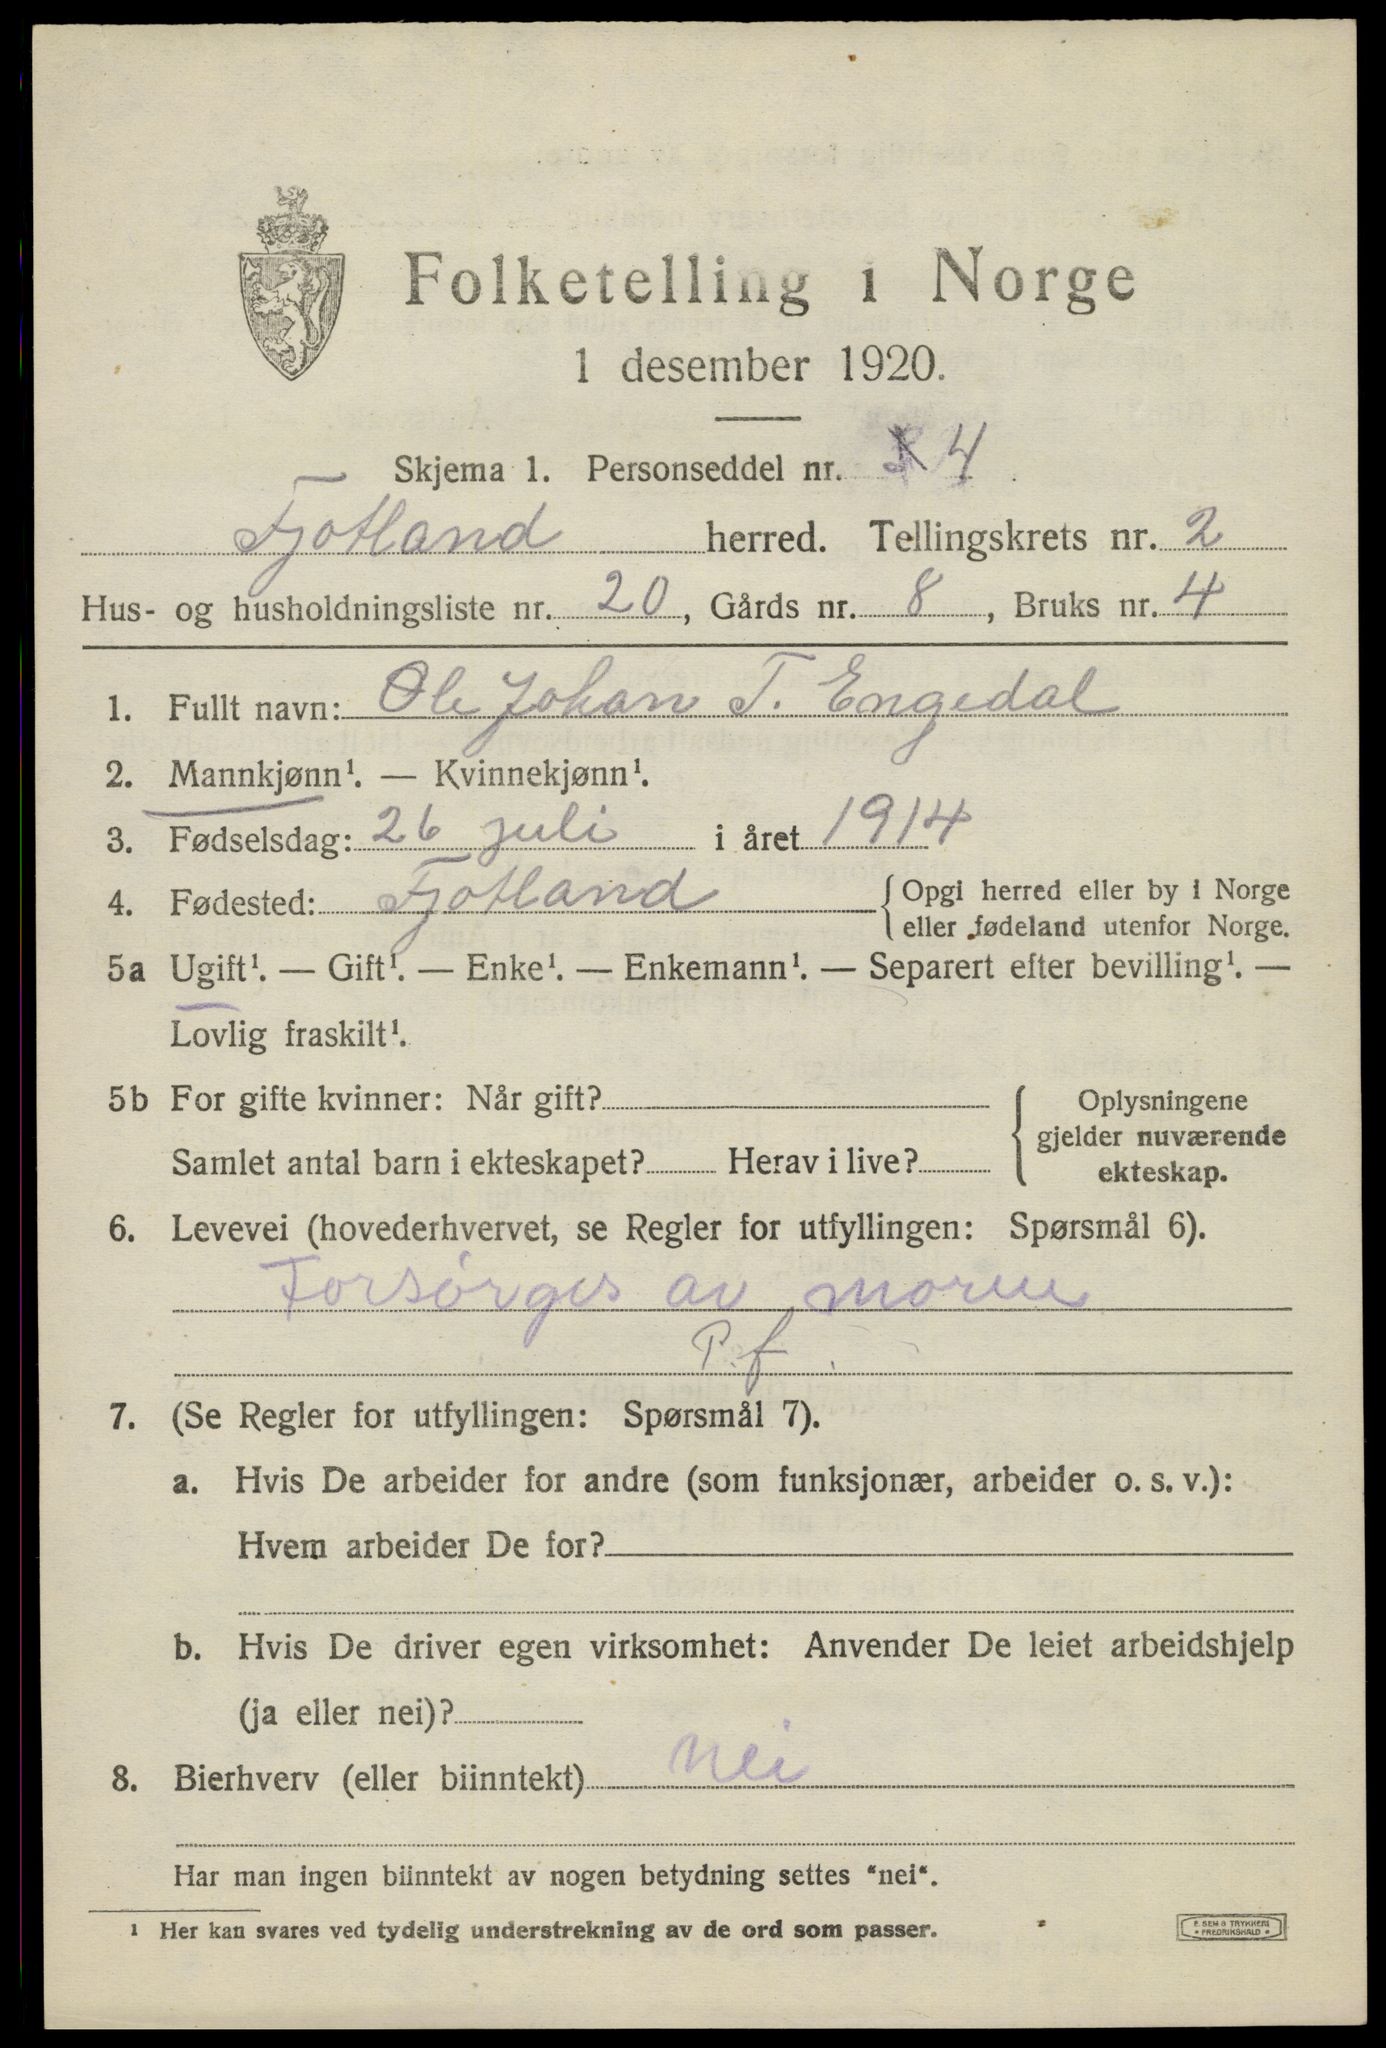 Folketelling i Norge
1 desember 1920.
Skjema 1. Personseddel nr. 4
Fjotland herred. Tellingskrets nr. 2
Hus- og husholdningsliste nr. 20, Gårds nr. 8, Bruks nr. 4
1. Fullt navn: Ole Johan T. Engedal
2. Mannkjønn¹. — Kvinnekjønn¹.
3. Fødselsdag: 26 juli i året 1914
4. Fødested: Fjotland {Opgi herred eller by i Norge
eller fødeland utenfor Norge.
5a Ugift¹. — Gift¹. — Enke¹. — Enkemann¹. — Separert efter bevilling¹. —
Lovlig fraskilt¹.
5b For gifte kvinner: Når gift? { Oplysningene
gjelder nuværende
Samlet antal barn i ekteskapet? Herav i live? ekteskap.
6. Levevei (hovederhvervet, se Regler for utfyllingen: Spørsmål 6).
Forsørges av moren
P.f.
7. (Se Regler for utfyllingen: Spørsmål 7).
a. Hvis De arbeider for andre (som funksjonær, arbeider o. s. v.):
Hvem arbeider De for?
b. Hvis De driver egen virksomhet: Anvender De leiet arbeidshjelp
(ja eller nei)?
8. Bierhverv (eller biinntekt) Nei
Har man ingen biinntekt av nogen betydning settes "nei".
¹ Her kan svares ved tydelig understrekning av de ord som passer.
E. SEM'S TRYKKERI
• FREDRIKSHALD •